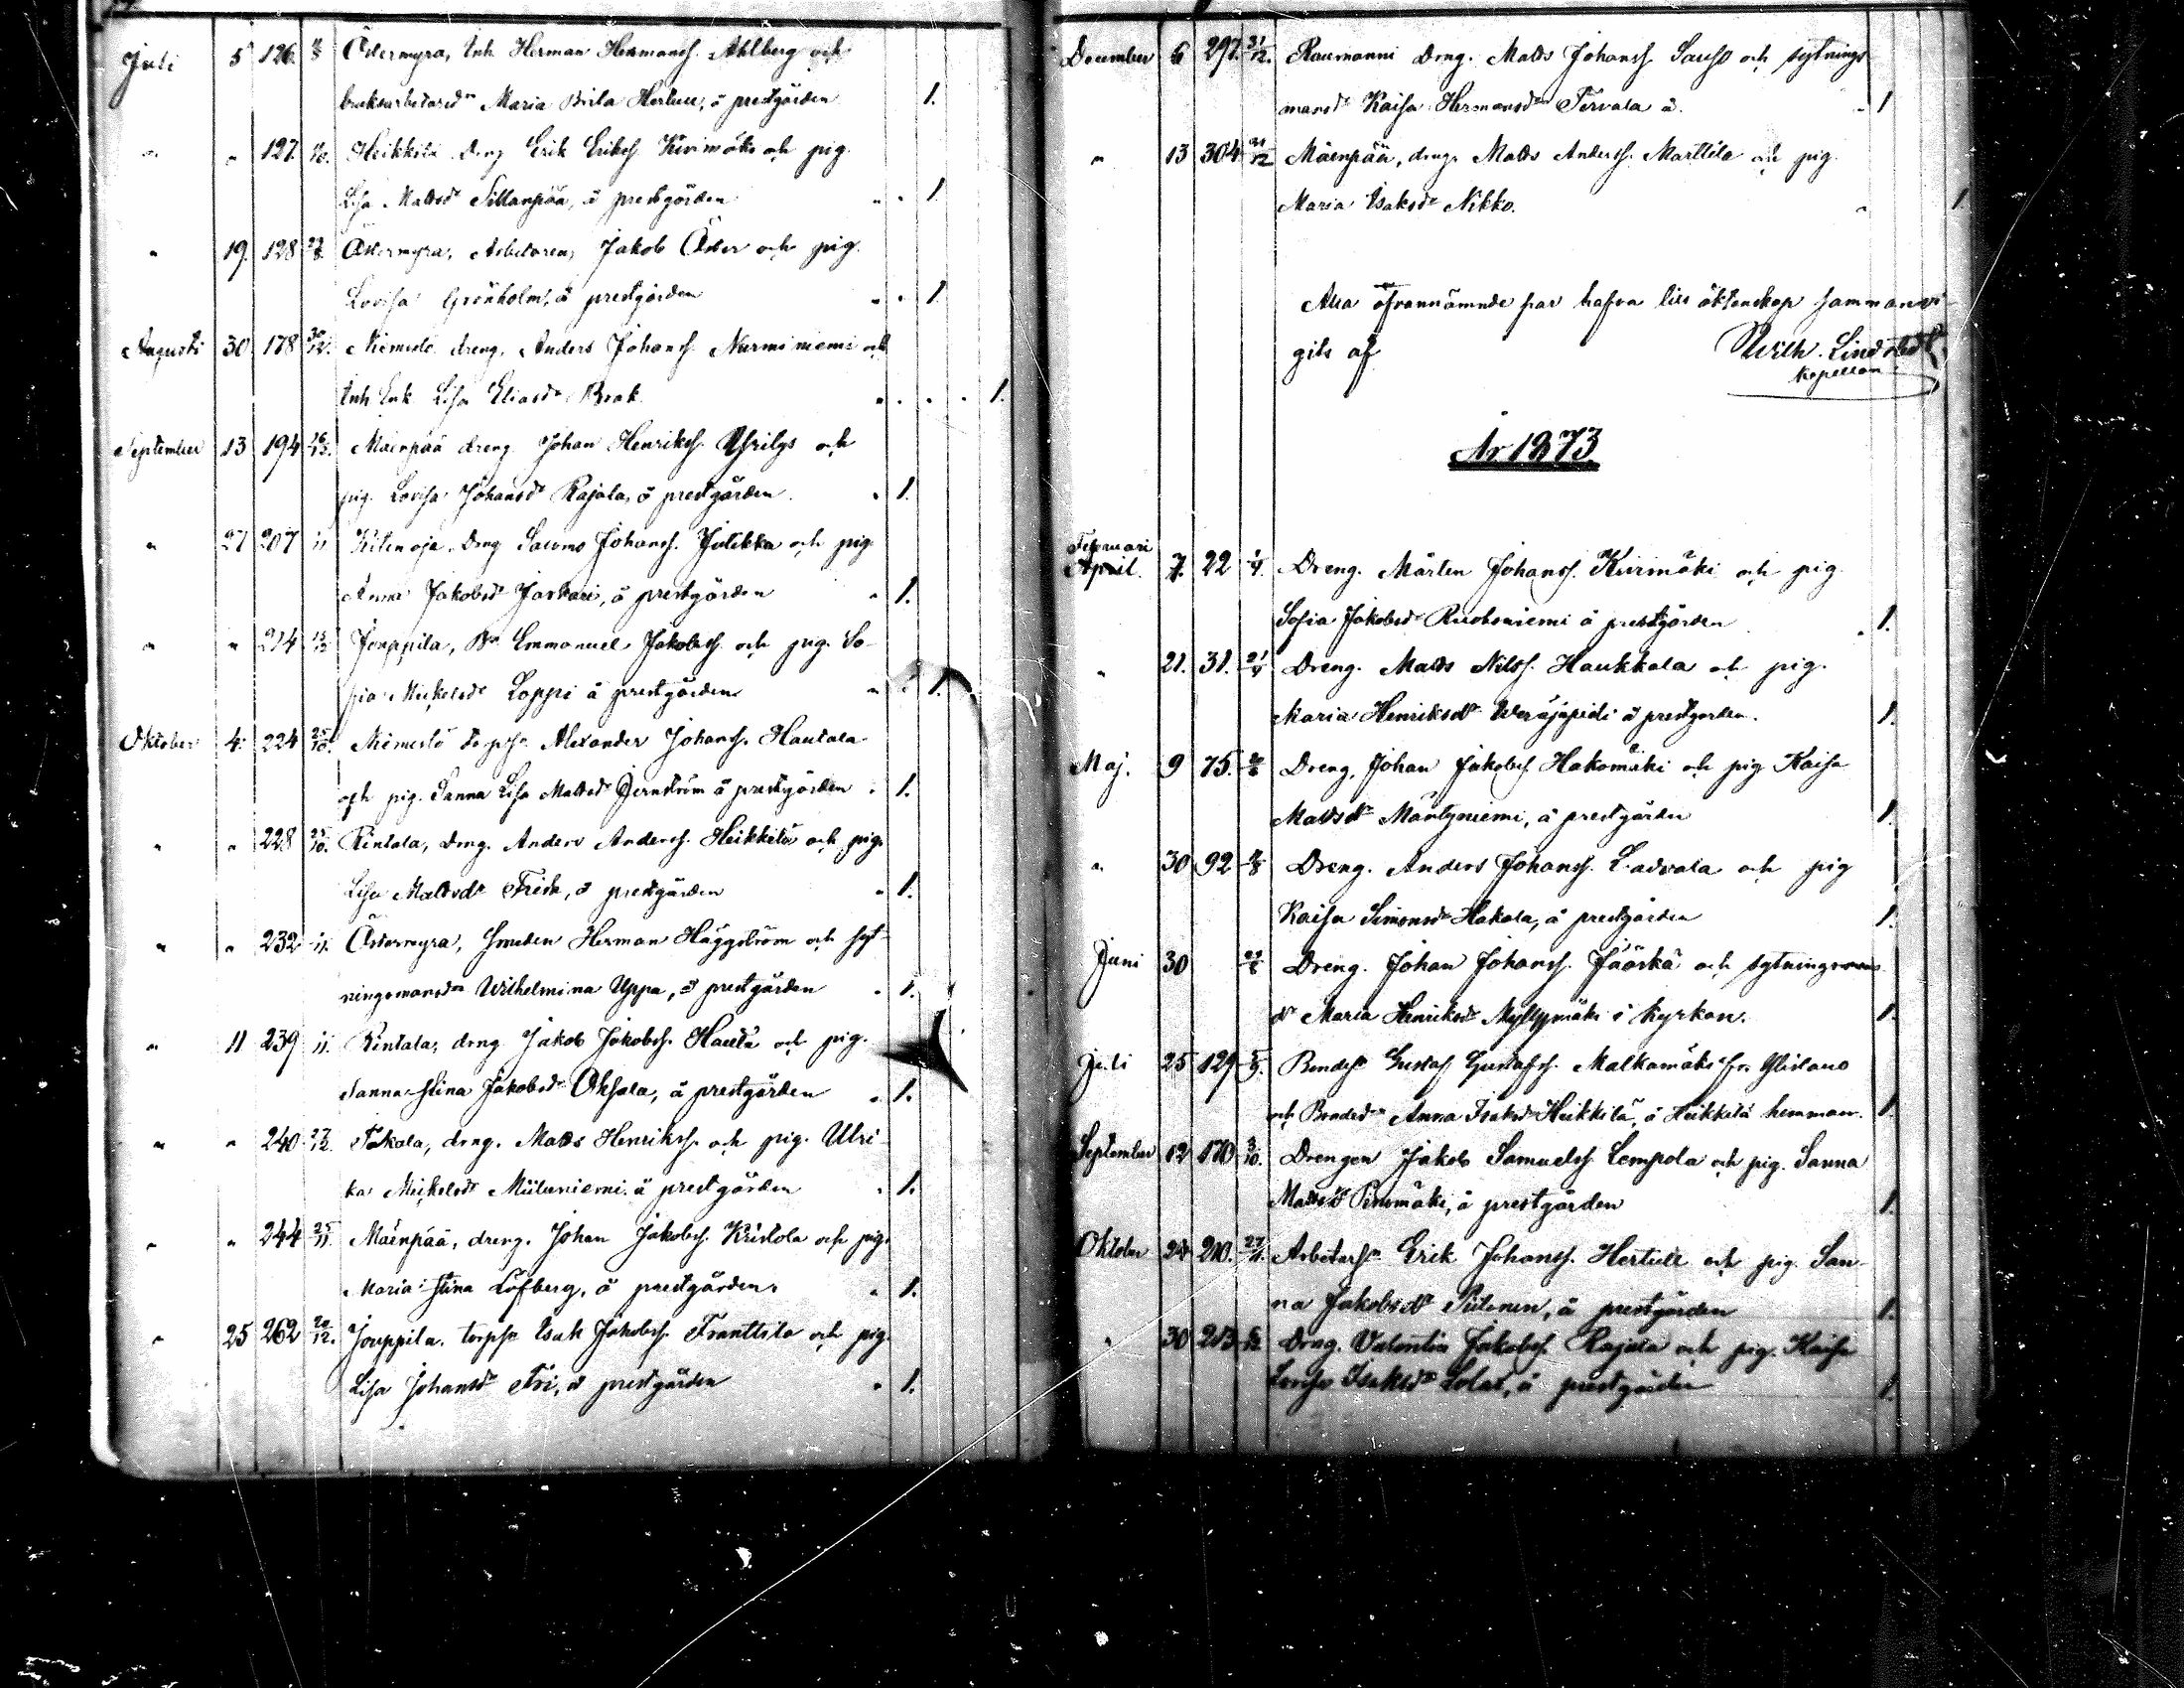 Juli 5 126. Östermyra, Inh. Herman Hermanss. Ahlberg och
bruksarbetaredr Maria Brita Hertull, å prestgården 1.
" " 127. Heikkilä dreng Erik Eriks. Kivimäki och pig.
Lisa Mattsdr Sillanpää, å prestgården " " 1.
" 19. 128 Östermyra, Arbetaren, Jakob Öster och pig.
Lovisa Grönholm, å prestgården " " 1.
Augusti 30 178 30/12. Niemistö dreng. Anders Johanss. Nurminiemi och
Inh Enk Lisa Eliasdr Brak " . . . 1.
September 13 194 Mäenpää dreng. Johan Henrikss. Yrilys och
pig. Lovisa Johansdr Rajala, å prestgården. " 1.
" 27 207 " Kitinoja. Dreng Salomo Johanss. Jutikka och pig
Anna Jakobsdr Jaskari, å prestgården " 1.
" " 214 Jouppila, Bs. Emmanuel Jakobss. och pig. So-
fia Mickelsdr Loppi å prestgården " 1.
Oktober 4. 224 25/10. Niemistö torpss. Alexander Johanss. Hautala
och pig. Sanna Lisa Mattsdr Jernström å prestgården . 1.
" " 228 25/10. Rintala, dreng. Anders Anderss. Heikkilä och pig.
Lisa Mattsdr Frisk, å prestgården " 1.
" " 232 Östermyra, Smeden Herman Häggström och syt-
ningsmansdr Wilhelmina Uppa, å prestgården . 1.
" 11 239 Rintala, dreng Jakob Jakobss. Hauta och pig.
Sanna Stina Jakobsdr Oksala, å prestgården " 1.
" " 240 27/12. Tokola, dreng. Matts Henrikss. och pig. Ulri-
ka Mickelsdr Miiluniemi å prestgården . 1.
" " 244 25/11. Mäenpää, dreng. Johan Jakobss. Kristola och pig.
Maria Stina Löfberg, å prestgården. " 1.
" 25 262 20/12. Jouppila. torpss Isak Jakobss. Franttila och pig.
Lisa Johansdr Fri, å prestgården " 1.
December 6 297. 31/12. Raumanni Dreng. Matts Johanss. Sauso och sytnings
mansdr Kaisa Hermansdr Tervala å. " 1
" 13 304 31/12 Mäenpää, dreng. Matts Anderss. Marttila och pig.
Maria Isaksdr Nikko. " 1
Alla ofvannämnde par hafva till äktenskap sammanvi-
gits af Wilh. Lindstedt
kapellan.
År 1873.
Februari
April. 7. 22 Dreng. Mårten Johanss. Kivimäki och pig
Sofia Jakobsdr Ruohoniemi å prestgården . 1.
" 21. 31. Dreng. Matts Nilss. Haukkala och pig.
Maria Henriksdr Weräjäpidi å prestgården. 1.
Maj. 9 75. Dreng. Johan Jakobss. Hakomäki och pig Kaisa
Mattsdr Mäntyniemi, å prestgården 1.
" 30 92 Dreng. Anders Johanss. Ladvala och pig
Kaisa Simonsdr Hakala, å prestgården 1.
Juni 30 Dreng. Johan Johanss. Jääskä och sytningsmans
dr Maria Henriksdr Myllymäki i kyrkan. 1.
Juli 25 129 Bondess Gustaf Gustafss. Malkamäki fr. Ylistaro
och Bondedr Anna Isaksdr Heikkilä, å Heikkilä hemman. 1.
September 12 170 3/10. Drengen Jakob Samuelss. Lempola och pig. Sanna
Mattsdr Pirnmäki, å prestgården 1.
Oktober 24 210. Arbetarss. Erik Johanss. Hertull och pig. San-
na Jakobsdr Piitonen, å prestgården 1.
" 30 213 Dreng. Valentin Jakobss. Rajala och pig. Kaisa
Lovisa Isaksdr Lolax, å prestgården 1.